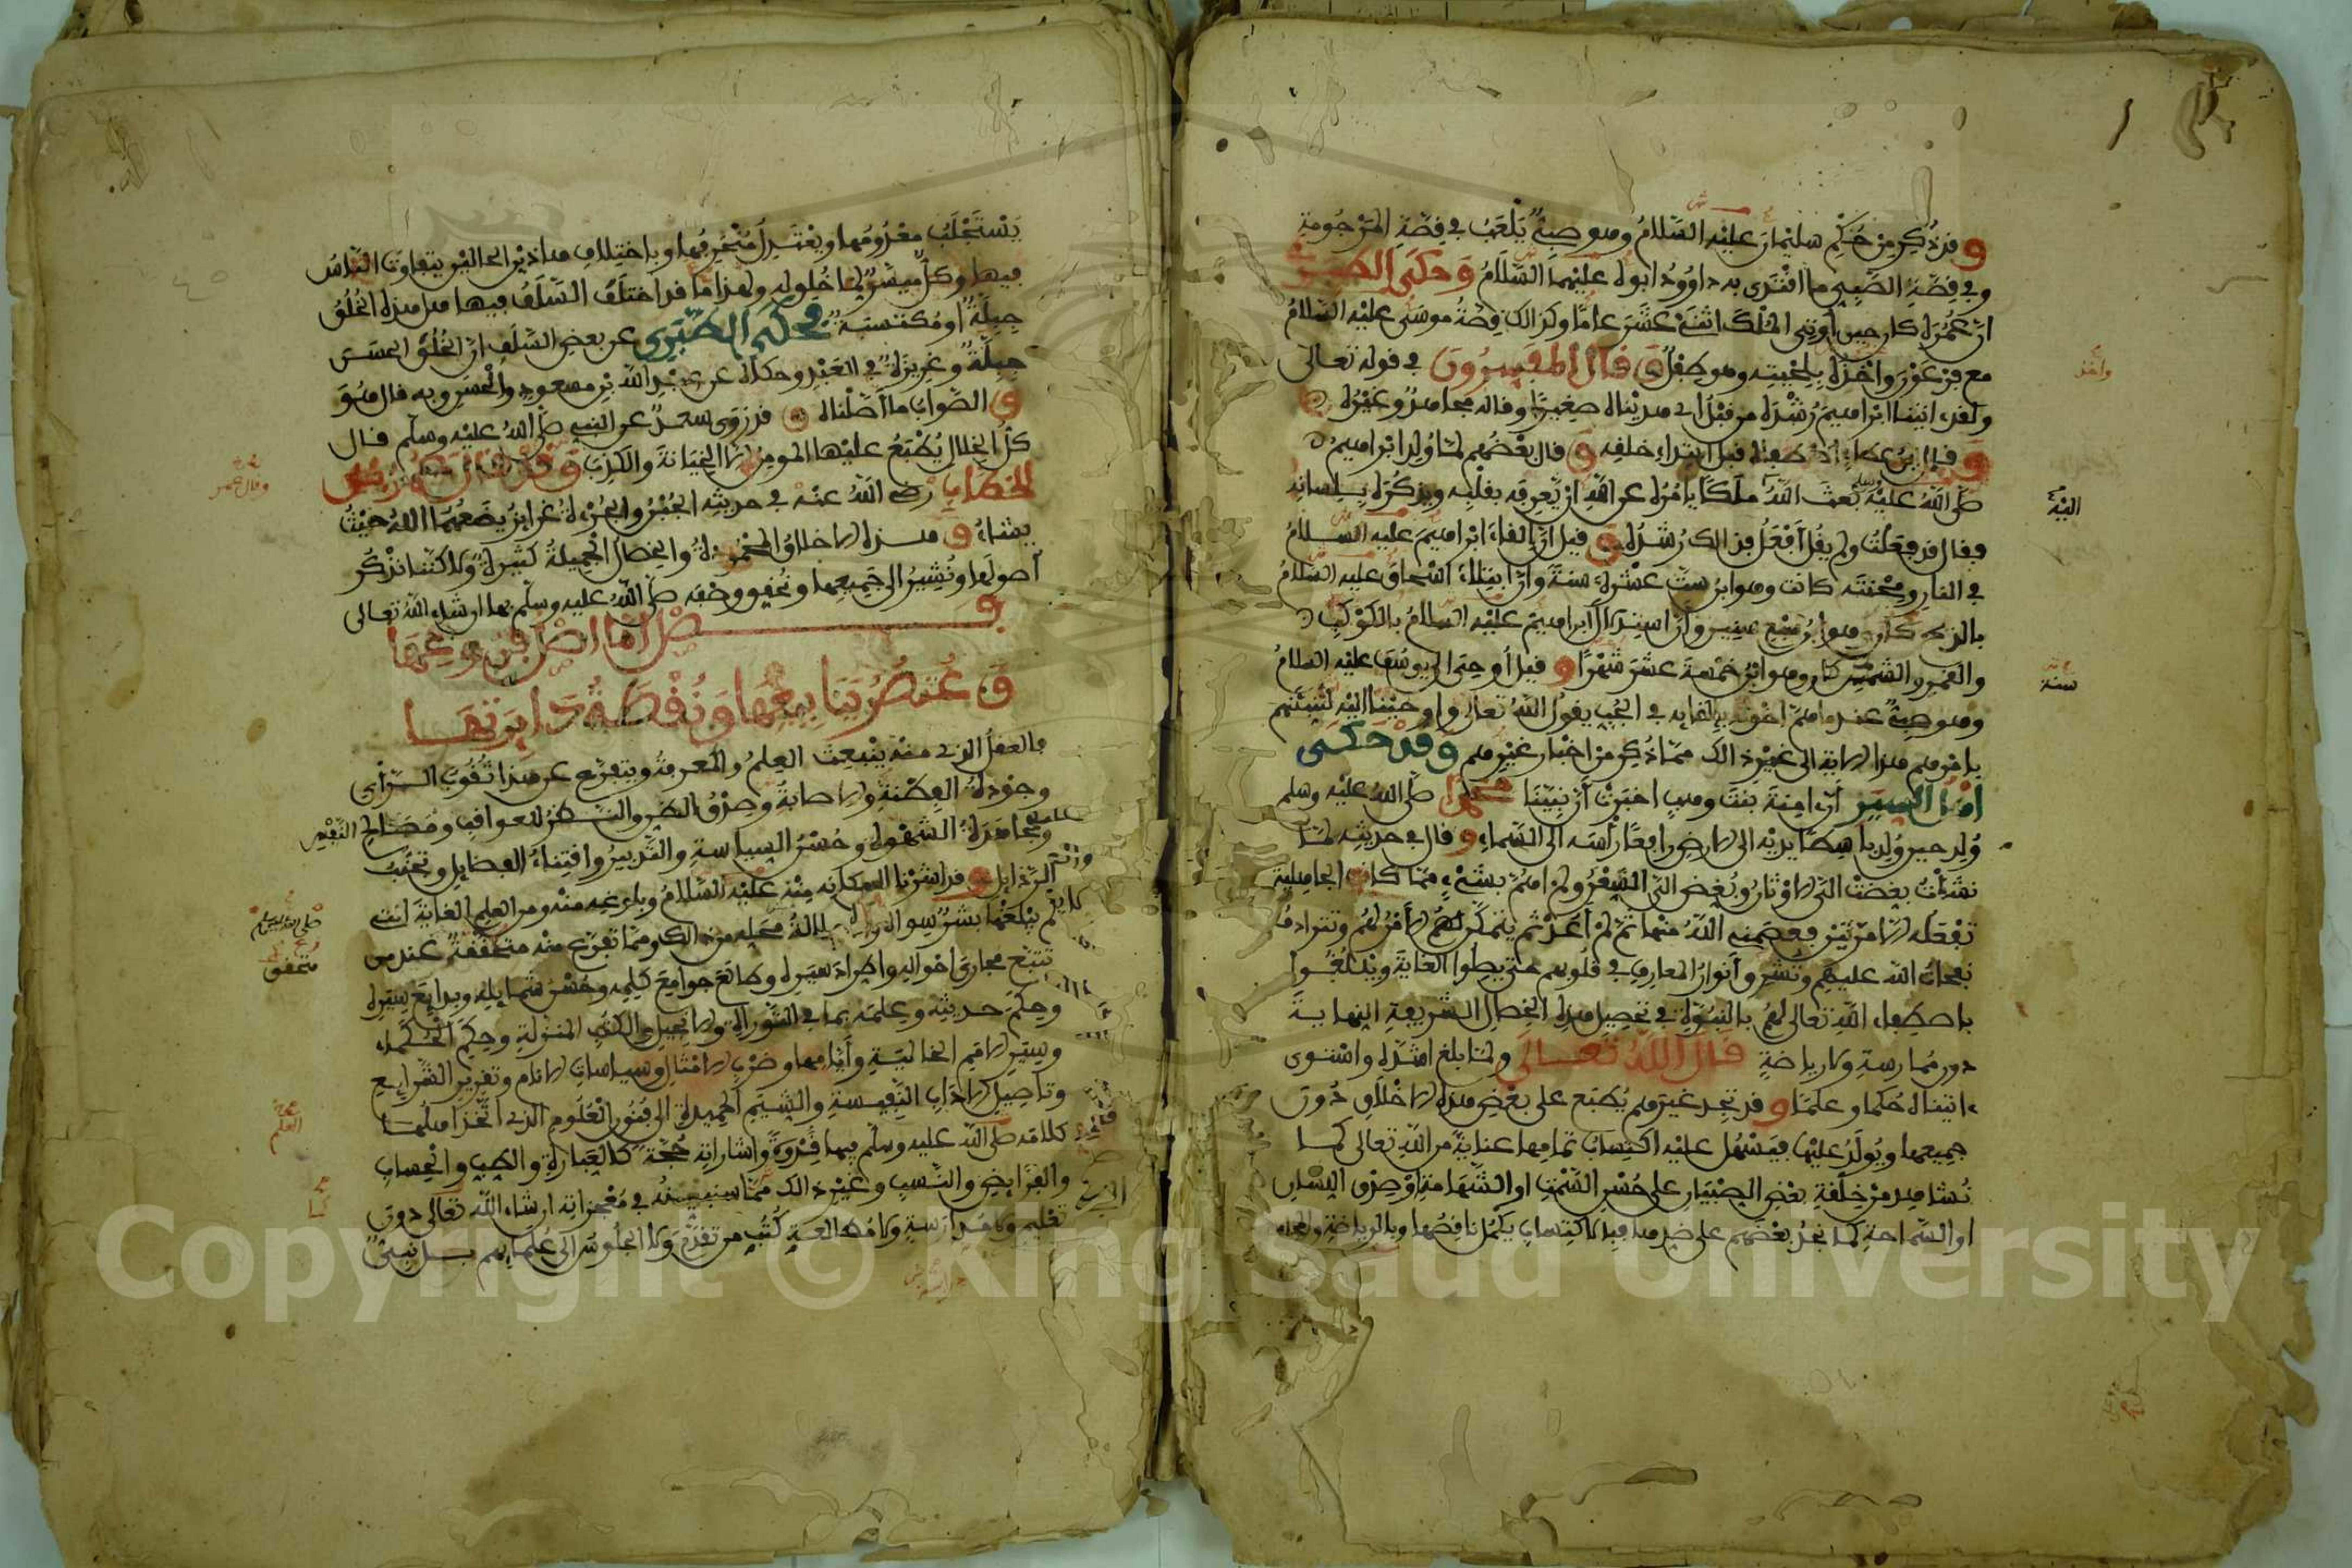 وقد ذُكر من حُكْمِ سليمان عليْه السّلامُ وهو صبيٌّ يَلْعَبُ في قِصّةِ المرْجُومةِ
وفي قِصّةِ الصَّبِيّ ما اقْتَدى به داوُودُ ابوه عليْهما السّلامُ وَحكَى الطبري
انّ عُمُرَه كان حين اوتي المُلْكَ اثنَيْ عَشَرَ عاما وكذالك قِصّةُ موسى عليْه السّلامُ
مع فِرْعَوْنَ واخْذُه بلِحْيَتِه وهو طفْلٌ وقال المفسِرُونَ في قوله تعالى
ولقد اتينا ابراهيمَ رُشْدَه من قبْلُ اي هديْناه صغيرًا وقاله مجاهدٌ وغيْرُه
وقال ابن عطاء اصطفاه قبل ابتداء خلقه وقال بعْضُهم لمّا وُلد ابراهيمُ
صلّى اللهُ عليْه بعث اللهُ ملَكًا يامُرُه عن اللهِ انْ يّعرِفَه بقلْبِه ويذكُرَه بلسانِه
فقال قد فعلْتُ ولم يقُلْ أفْعَلُ فذالك رُشْدُه وقيل انّ إلقاءَ ابراهيمَ عليه السلامُ
في النار ومِحْنتَه كانت وهو ابنُ ستَّ عشْرةَ سنةً وانّ ابتلاءَ اسْحاقَ عليه السّلامُ
بالذبح كان وهو ابنُ سَبْعِ سنين وأنّ استدلالَ ابراهيمَ عليْه السلامُ بالكوْكَبِ
والقمر والشّمسِ كان وهو ابْنُ خمْسةَ عشَرَ شهْرًا وقيل أُوحِيَ الى يوسُفَ عليْه السلامُ
وهو صبيٌّ عندما همّ اخْوتُه بإلقايِه في الجُبِّ يقولُ اللهُ تعالى وأوحيْنا اليْه لتُنَبّئَنّهم
بامْرِهم هذا الاية الى غيْرِ ذالك ممّا ذُكِر من اخْبار غيْرِهم وقدْ حَكَى
اهْلُ السِيَرِ أنّ امِنةَ بنتَ وهبٍ اخبَرَتْ أنّ نبيّنا محمدا صلّى اللهُ عليْه وسلم
وُلِد حين وُلِد باسِطًا يديْه الى الارضِ رافعًا رأسَه الى السّماءِ وقال في حديثِه لمّا
نشَأْتُ بُغِّضَتْ اليّ الاوْثانُ وبُغِّض اليّ الشِّعْرُ ولم اهُمَّ بشَيْءٍ ممّا كانت الجاهليّة
تفْعَلُه الا مرّتيْن فعصَمني اللهُ منْهما ثمّ لمْ أعُدْ ثم يتمكّن لهم الأمْرُ لهم وتترادفُ
نفحاتُ اللهِ عليهم وتُشرِقُ أنوارُ المعارفِ في قلُوبهم حتّى يصِلوا الغايةَ ويبْلُغُوا
باصطِفاءِ اللهِ تعالى لهم بالنبوّةِ في تحصِيلِ هذه الخِصالِ الشّريفةِ النهايةَ
دون مُمارسةٍ ولا رياضةٍ قال اللهُ تعالى ولمّا بلغ اشدّه واسْتوى
ءاتيناه حُكما وعلمًا وقد نجِد غيْرَهم يُطبَع على بعْضِ هذه الاخْلاقِ دُونَ
جميعها ويُولَدُ عليْها فيَسْهُل عليْه اكْتِسابُ تمامِها عنايةً من اللهِ تعالى كما
نُشاهد مِنْ خِلْقةِ بعْضِ الصِبْيان على حُسْنِ السّمْتِ او الشّهامةِ أوْ صِدْقِ اللسانِ
او السّماحةِ كما نجدُ بعْضَهم على ضدِّها فبالاكتِسابِ يكمُلُ ناقِصُها وبالرياضة
واخذ
سنة
يَسْتَجْلَبُ معْدُومُها ويعْتَدِلُ مُنْحَرِفُها وباخْتِلافِ هذين الحاليْن يتفاوتُ النّاسُ
فيها وكلٌّ ميسَّرٌ لما خُلِق له ولهذا ما قد اختلَفَ السّلَفُ فيها هل هذا الخُلُقُ
جِبِلّةٌ او مُكتسَبةٌ فحكى الطّبَري عن بعضِ السّلَفِ انّ الخُلُقَ الحسَنَ
جِبِلّةٌ وغريزةٌ في العَبْدِ وحكاه عن عبْدِ اللهِ بْنِ مسعودٍ والْحسَنِ وبه قال هُوَ
والصّوابُ ما أصّلْناه قد رَوى سعدٌ عن النبي صلّى اللهُ عليْه وسلّم قال
كلُّ الخلالِ يُطْبَعُ عليْها المومِنُ الا الخيانةَ والكذِبَ وَقَدْ قال عمر بنُ
الخطابِ رضي اللهُ عنْه في حديثِه الجُبْنُ والجُرْءةُ غرايزُ يضَعُهما اللهُ حيْثُ
يشاءُ وهذه الاخلاقُ المحْمُودةُ والخصالُ الجميلةُ كثيرةٌ ولكنّنا نذْكُر
أصولَها ونُشِيرُ الى جَميعِها ونُحقِّق وصْفَه صلّى اللهُ عليه وسلّم بها ان شاء اللهُ تعالى
فصْل امّا اصْل فروعِها
وَعُنصُرُ يَنابِيعِها وَنُقْطَةُ دايرتها
فالعقلُ الذي منْه ينْبعِث العِلمُ والمعرفةُ ويتفرّع عن هذا ثُقُوبُ الرّأي
وجَوْدةُ الفِطْنةِ والاصابةُ وصِدْقُ الظنِّ والنظرُ للعواقب ومصالح النّفْسِ
ومُجاهَدةُ الشّهْوةِ وحُسْنُ السِياسةِ والتّدبيرِ واقتِناءُ الفضايلِ وتجنُّبُ
الرّذايلِ وقد اشرْنا الى مكانِه مِنْه عليْه السّلامُ وبلوغِه منْه ومن العِلمِ الغايةَ التي
لم يبْلُغْها بشَرٌ سواه جلالةُ محلِّه من ذالك وممّا تفرّع منْه متحقّقةٌ عند من
تتبّع مجاريَ احْوالِه واطِّرادَ سِيَرِه وطالَعَ جوامِعَ كلِمِه وحُسْنَ شمايلِه وبدايِعَ سِيَرِه
وحِكَمَ حديثِه وعِلمَه بما في التّوراةِ والانجيلِ والكتُبِ المنزلةِ وحِكَمِ الحُكَماءِ
وسِيَرِ الاممِ الخاليةِ وأيّامِها وضرْبِ الامْثالِ وسِياساتِ الانامِ وتقريرِ الشّرايعِ
وتاصِيلِ الادابِ النّفيسةِ والشّيَمِ الحميدةِ الى فُنُونِ الْعُلُومِ التي اتّخَذ اهلُها
كلامَه صلّى اللهُ عليه وسلّم فيها قُدْوةً واشاراتِه حُجّةً كالعِبارةِ والطِبِّ والحِسابِ
والفرايضِ والنّسبِ وغيْرِ ذالك ممّا سنبيّنُه في مُعْجزاتِه ان شاء اللهُ تعالى دون
تعْليمٍ ولا مُدارَسةٍ ولا مُطالعةِ كُتُبِ من تقدّمَ ولا الجُلوسِ الى عُلَمايِهم بل نبيٌّ
وقال عمر
صلى الله عليه وسلم
متحقق
العلم